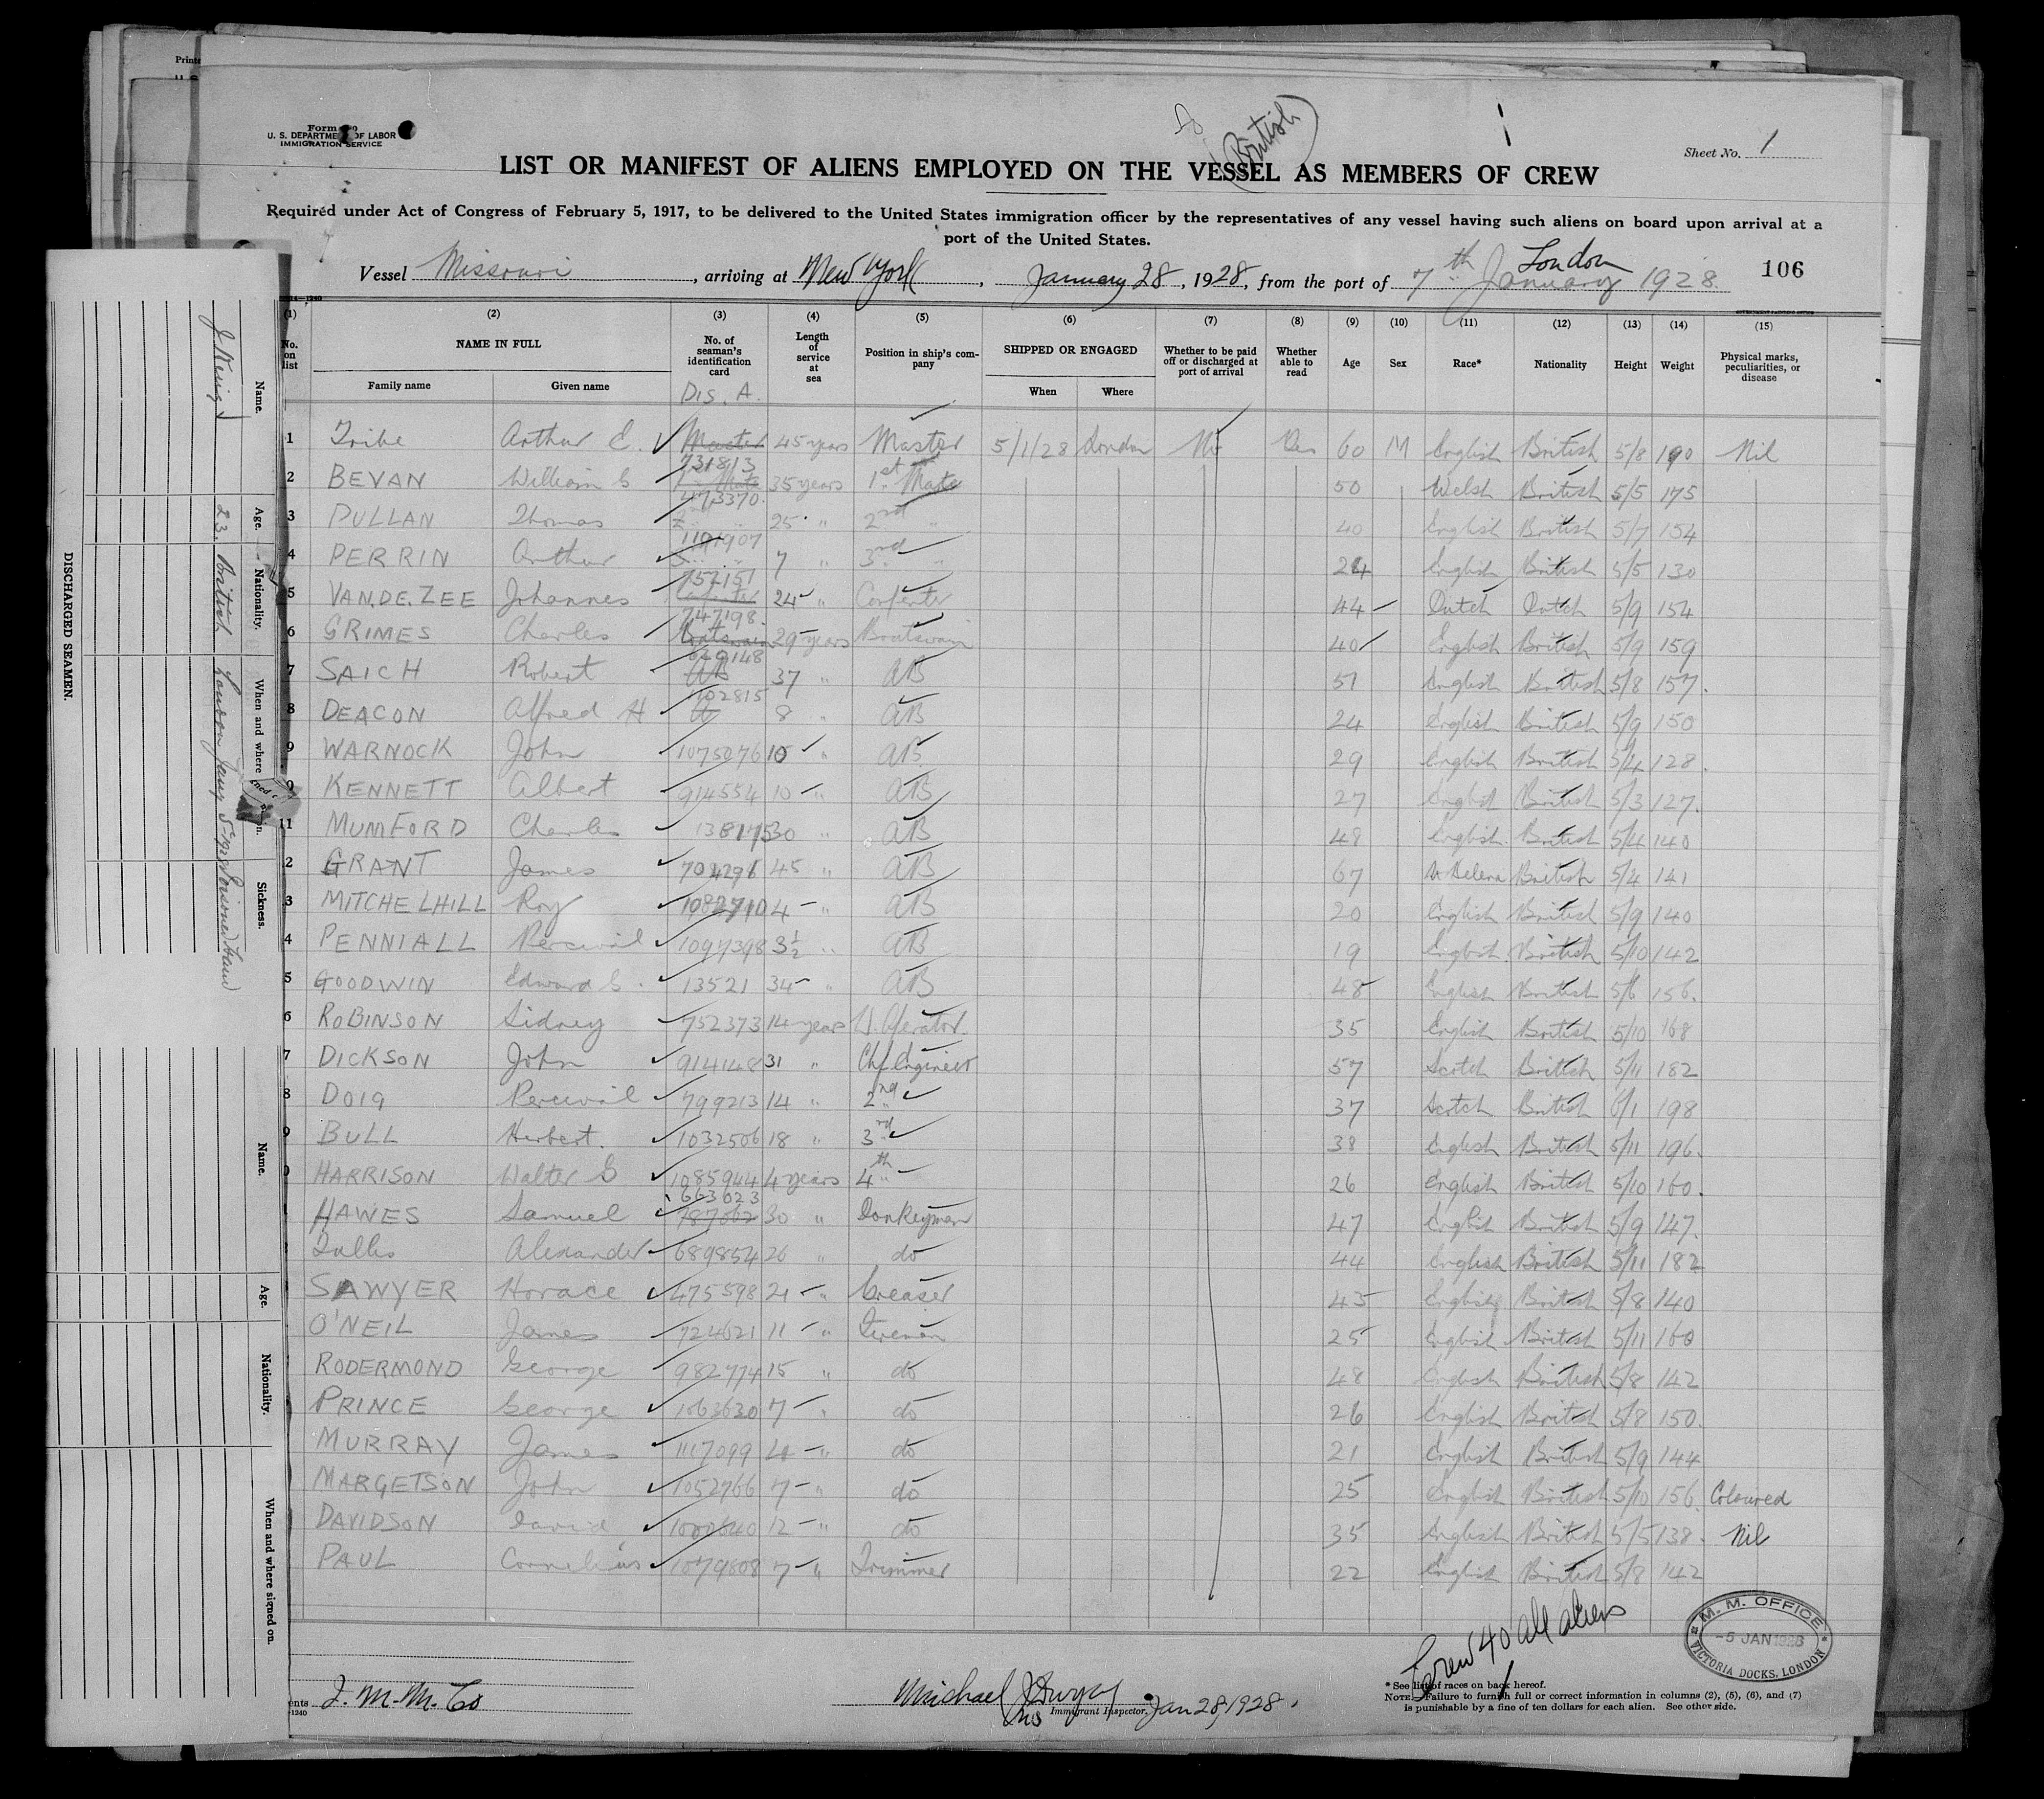 Form
U. S. DEPARTMENT OF LABOR
IMMIGRATION SERVICE
(British)
Sheet No. 1
LIST OR MANIFEST OF ALIENS EMPLOYED ON THE VESSEL AS MEMBERS OF CREW
Required under Act of Congress of February 5, 1917, to be delivered to the United States immigration officer by the representatives of any vessel having such aliens on board upon arrival at a
port of the United States.
Vessel Missouri, arriving at New York, January 28, 1928, from the port of London 7th January 1928. 106
(1) (2) (3) (4) (5) (6) (7) (8) (9) (10) (11) (12) (13) (14) (15)
No. on list NAME IN FULL No. of seaman's identification card Length of service at sea Position in ship's company SHIPPED OR ENGAGED Whether to be paid off or discharged at port of arrival Whether able to read Age Sex Race* Nationality Height Weight Physical marks, peculiarities, or disease
Family name Given name Dis. A. When Where
1 Tribe Arthur E. Master 45 years Master 5/1/28 London No Yes 60 M English British 5/8 190 Nil
2 BEVAN William G 731813 35 years 1st Mate 50 Welsh British 5/5 175
3 PULLAN Thomas 473370 25 " 2nd " 40 English British 5/7 154
4 PERRIN Arthur 1101907 7 " 3rd " 24 English British 5/5 130
5 VAN.DE.ZEE Johannes 752151 24 " Carpenter 44 Dutch Dutch 5/9 154
6 GRIMES Charles 747198 29 years Boatswain 40 English British 5/9 159
7 SAICH Robert 37 " AB 51 English British 5/8 157.
8 DEACON Alfred H 8 " AB 24 English British 5/9 150
9 WARNOCK John 1075076 10 " AB 29 English British 5/4 128.
KENNETT Albert 914554 10 " AB 27 English British 5/3 127.
11 MUMFORD Charles 30 " AB 48 English British 5/4 140
2 GRANT James 704296 45 " AB 67 St Helena British 5/4 141
3 MITCHELHILL Roy 1082710 4 " AB 20 English British 5/9 140
4 PENNIALL Percival 1097398 3½ " AB 19 English British 5/10 142
5 GOODWIN Edward G. 13521 34 " AB 48 English British 5/6 156.
6 ROBINSON Sidney 752373 14 years W. Operator. 35 English British 5/10 168
7 DICKSON John 914148 31 " Chf Engineer 57 Scotch British 5/11 182
8 DOIG Percival 799213 14 " 2nd " 37 Scotch British 6/1 198
9 BULL Herbert. 1032506 18 " 3rd " 38 English British 5/11 196.
HARRISON Walter G 1085944 4 years 4th " 26 English British 5/10 160.
HAWES Samuel 663623 30 " Donkeyman 47 English British 5/9 147.
Tullis Alexander 689854 26 " do 44 English British 5/11 182
SAWYER Horace 475598 21 " Greaser 43 English British 5/8 140
O'NEIL James 724621 11 " Fireman 25 English British 5/11 160
RODERMOND George 982774 15 " do 48 English British 5/8 142
PRINCE George 1063630 7 " do 26 English British 5/8 150.
MURRAY James 1117099 4 " do 21 English British 5/9 144
MARGETSON John 1052766 7 " do 25 English British 5/10 156 Coloured
DAVIDSON David 12 " do 35 English British 5/5 138. Nil
PAUL Cornelius 1079808 7 " Trimmer 22 English British 5/8 142
Crew 40 all aliens
M. M. OFFICE
-5 JAN 1928
VICTORIA DOCKS, LONDON
I. M. M. Co
Michael J Dwyer Jan 28, 1928.
Immigrant Inspector.
* See list of races on back hereof.
NOTE.—Failure to furnish full or correct information in columns (2), (5), (6), and (7)
is punishable by a fine of ten dollars for each alien. See other side.
DISCHARGED SEAMEN.
Name. Age. Nationality. When and where Sickness.
23. British London Jany 5-1928 Poisoned hand
Name. Age. Nationality. When and where signed on.